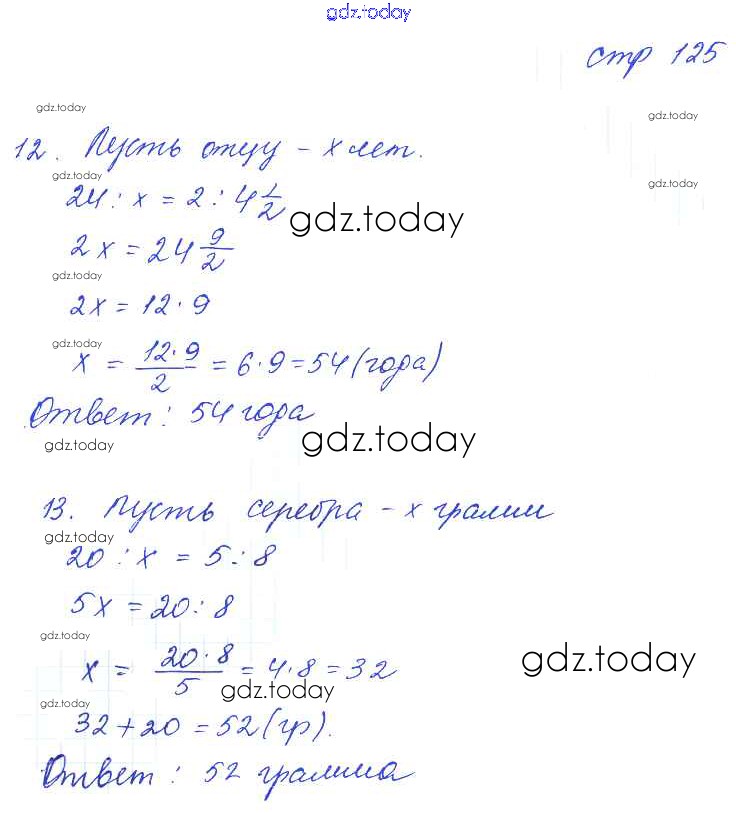 gdz.today
стр 125
gdz.today
gdz.today
12. Пусть отцу - x лет.
gdz.today
gdz.today
24 : x = 2 : 4 1/2
gdz.today
2x = 24 9/2
gdz.today
2x = 12 · 9
gdz.today
x = 12·9/2 = 6·9 = 54 (года)
Ответ: 54 года
gdz.today
gdz.today
13. Пусть серебра - x грамм
gdz.today
20 : x = 5 : 8
5x = 20 : 8
gdz.today
x = 20·8/5 = 4·8 = 32
gdz.today
gdz.today
gdz.today
32 + 20 = 52 (гр).
Ответ: 52 грамма